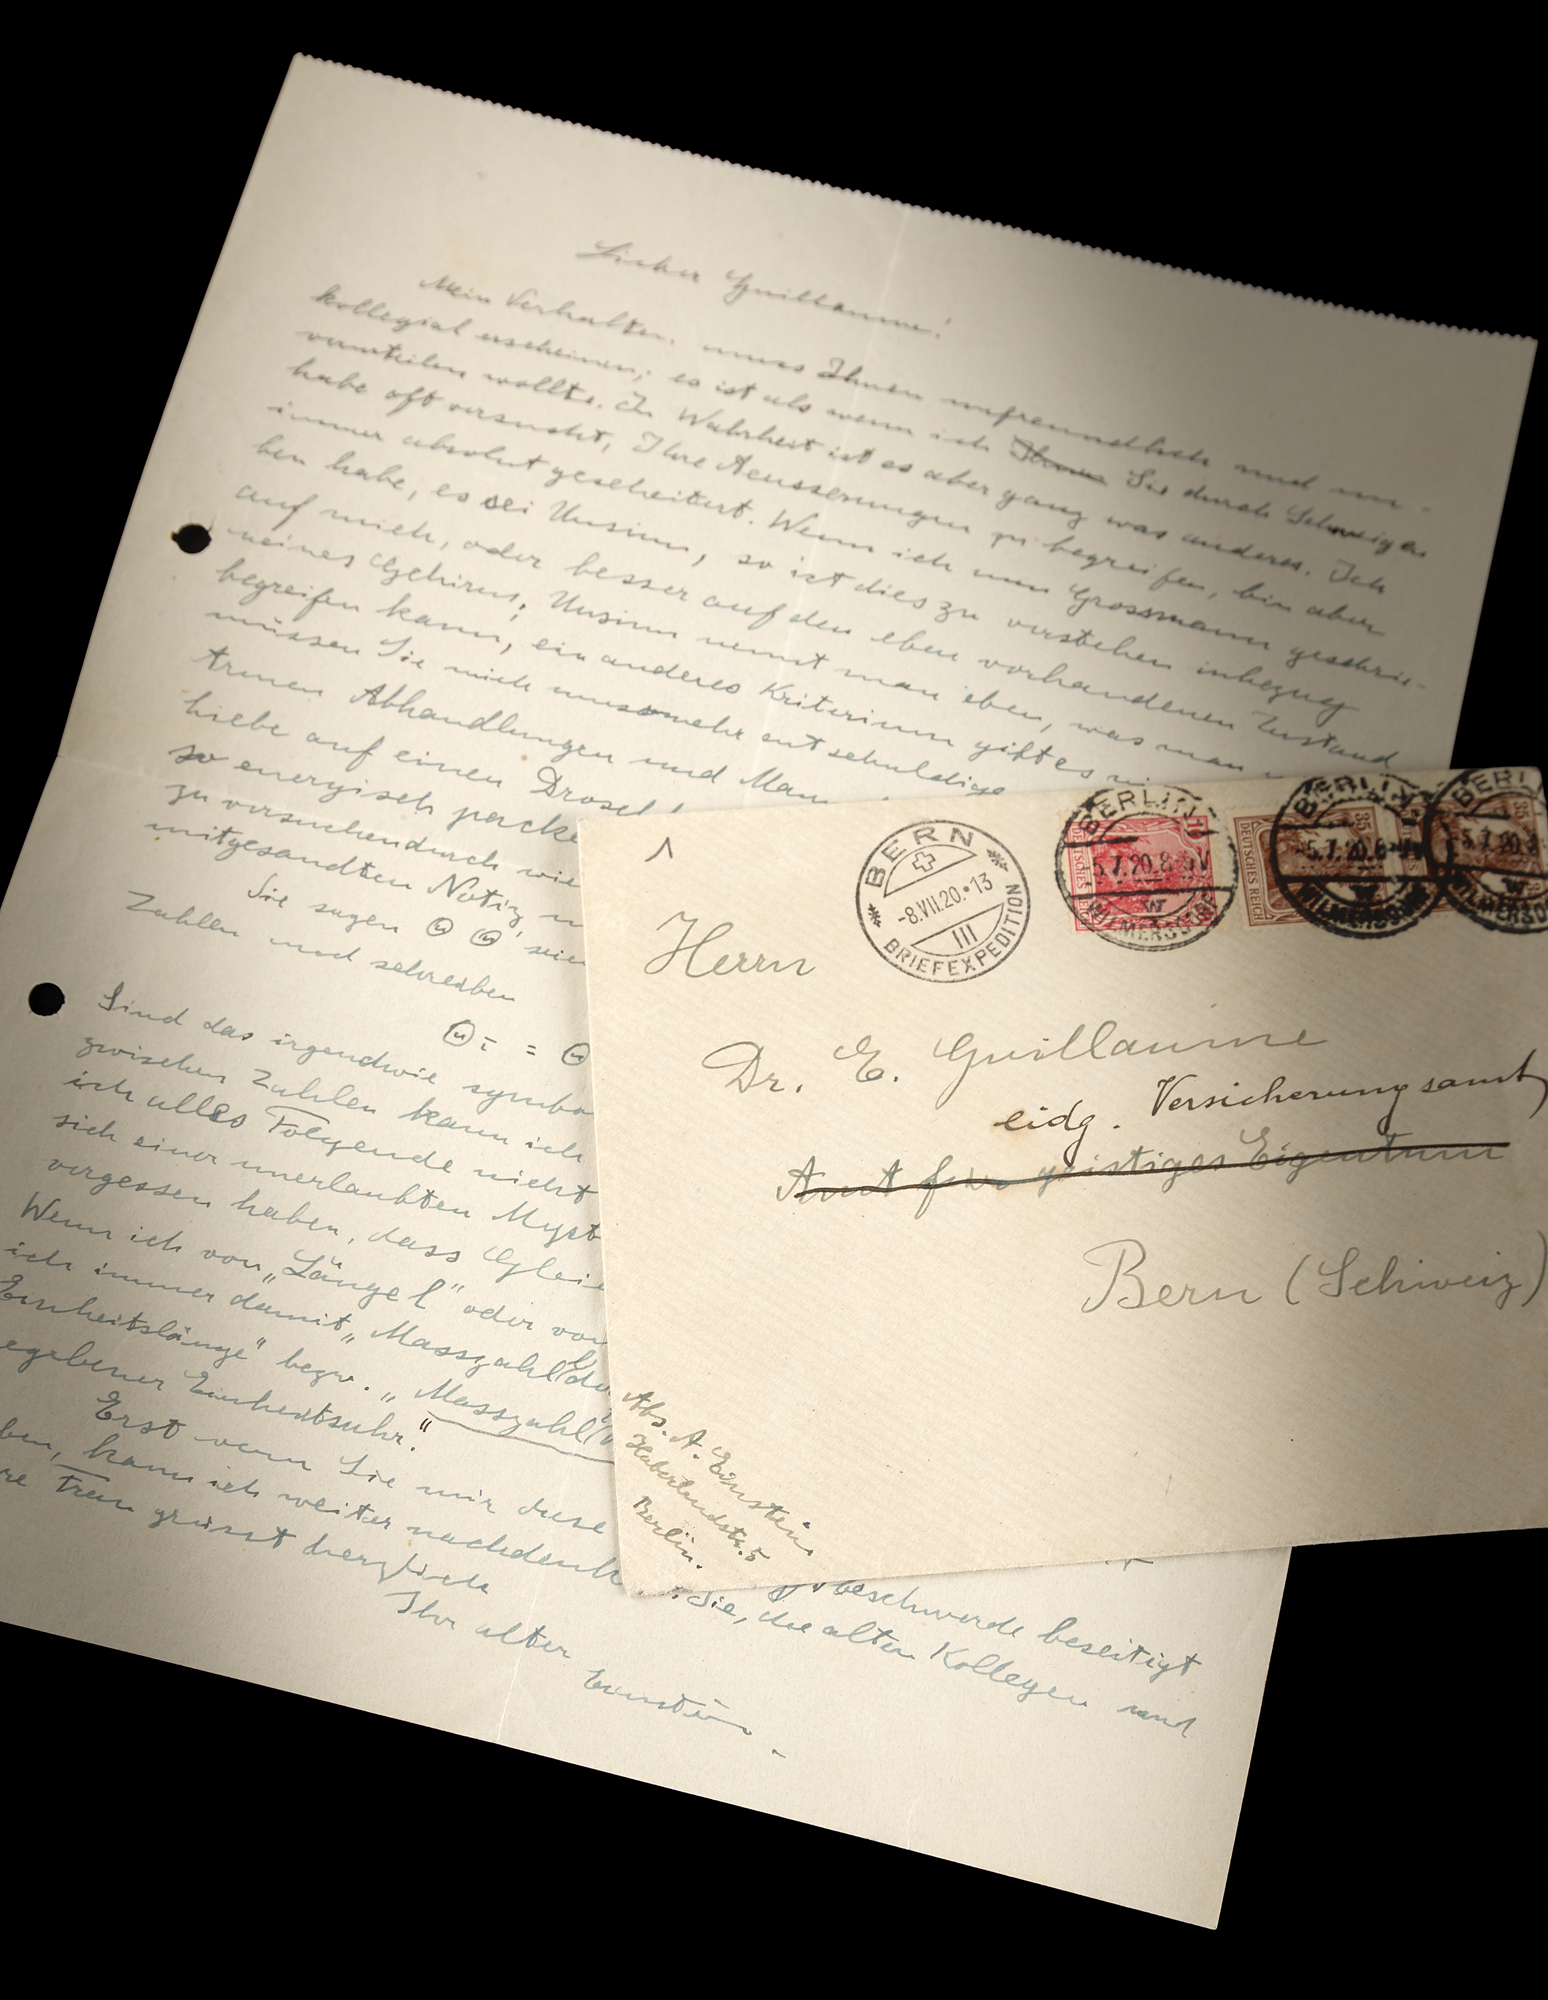 Lieber Guillaume!
Mein Verhalten muss Ihnen unfreundlich und un-
kollegial erscheinen; es ist als wenn ich Ihnen Sie durch Schweigen
verurteilen wollte. In Wahrheit ist es aber ganz was anderes. Ich
habe oft versucht, Ihre Aeusserungen zu begreifen, bin aber
immer absolut gescheitert. Wenn ich nun Grossmann geschrie-
ben habe, es sei Unsinn, so ist dies zu verstehen inbezug
auf mich, oder besser auf den eben vorhandenen Zustand
meines Gehirns; Unsinn nennt man eben, was man
begreifen kann, ein anderes Kriterium gibt es
müssen Sie mich umsomehr entschuldigen
Abhandlungen und
hiebe auf einen
so energisch
zu versuchen durch wie
mitgesandten Notiz
Sie sagen seien
Zahlen und schreiben
=
Sind das irgendwie symbo
zwischen Zahlen kann ich
ich alles Folgende nicht
sich einer unerlaubten Myst
vergessen haben, dass Glei
Wenn ich von „Länge l“ oder von
ich immer damit „Masszahl
Einheitslänge“ bezw. „Masszahl
egebener Einheitsuhr.“
Erst wenn Sie mir diese beschwerde beseitigt
ben, kann ich weiter nachdenk Sie, die alten Kollegen und
re Frau grüsst herzlich
Ihr alter
Einstein.
BERN
-8.VII.20.•13
III
BRIEFEXPEDITION
BERLIN
5.7.20.8-9V
W
WILMERSDORF
DEUTSCHES REICH
BERLIN
5.7.20.8-9V
W
WILMERSDORF
35
DEUTSCHES REICH
BERLIN
5.7.20.8
W
WILMERSDO
35
Herrn
Dr. E. Guillaume
eidg. Versicherungsamt
Amt für geistiges Eigentum
Bern (Schweiz)
Abs. A. Einstein
Haberlandstr. 5
Berlin.